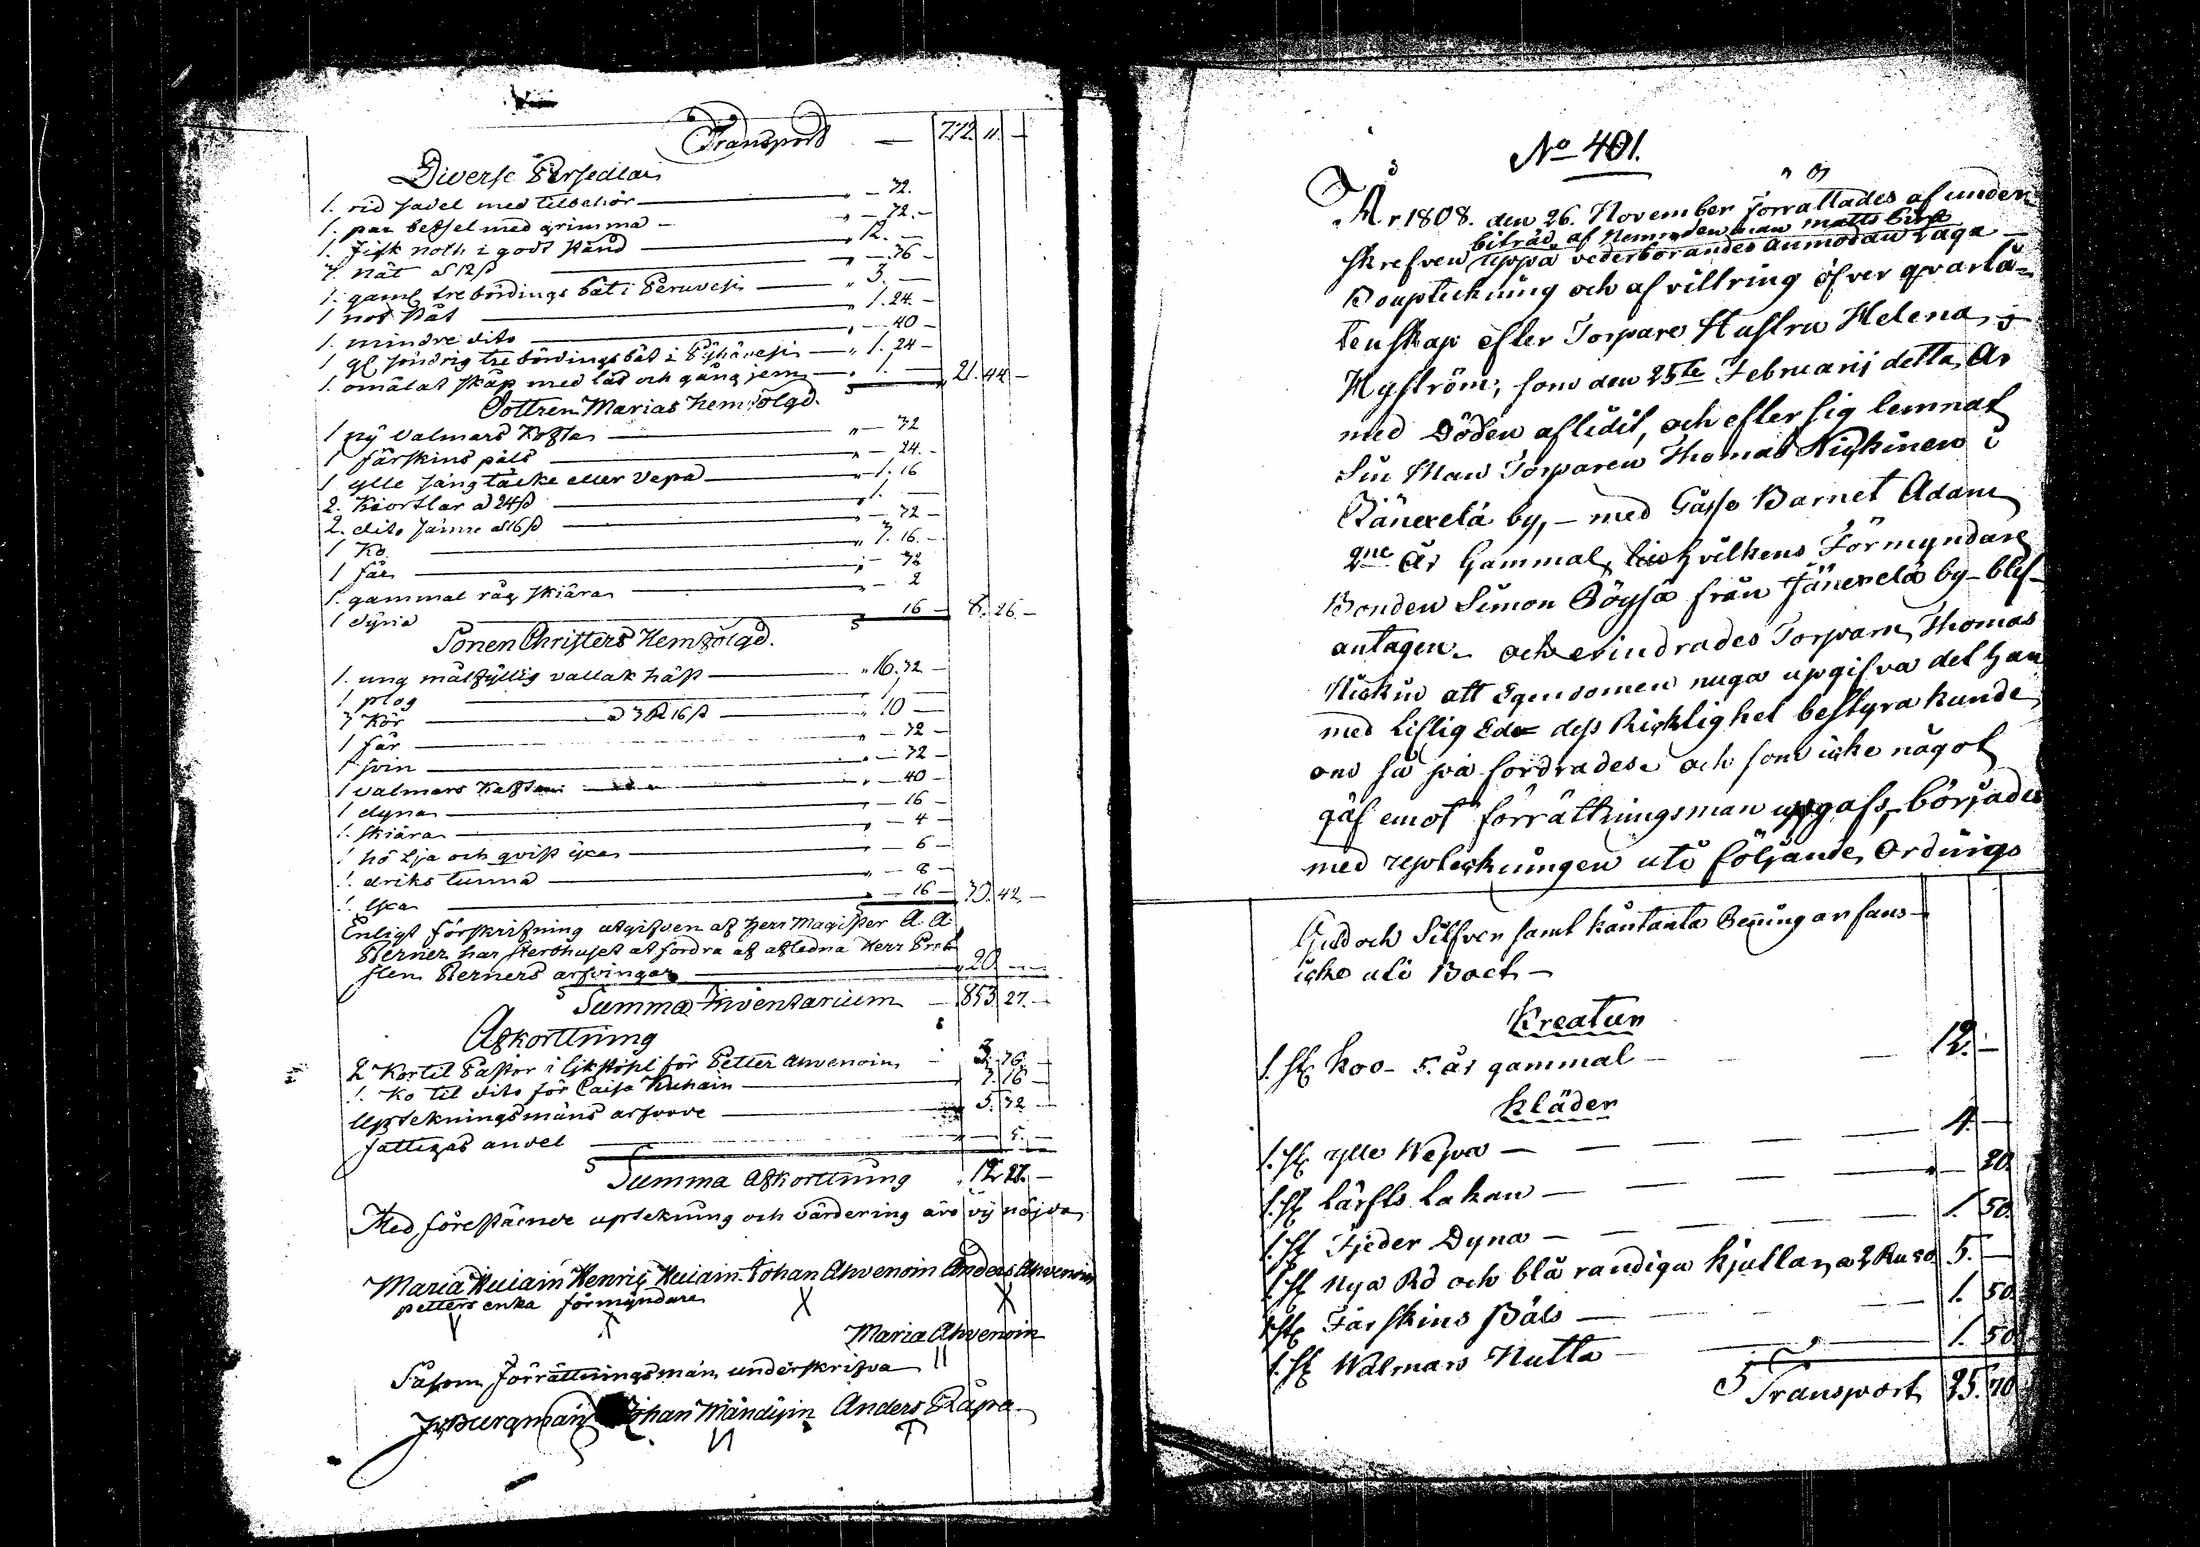 Transport — 772. 11. —
Diverse Persedlar
1. rid sadel med tilbehör — " — 32.
1. par betsel med grimma — " — 32. —
1. fisk noth i godt stånd — " 12. —
7. Nät a 12 s — " — 36 —
1. gaml tre bördings båt i Peruvesi — " 3. —
1 not båt — " 1. 24 —
1. mindre dito — " — 40 —
1 gl söndrig tre bördings båt i Pyhävesi — " 1. 24 —
1. omålat skåp med lås och gångjern — " 1. — 21. 44 —
Dottren Marias hemfölgd.
1 ny valmars kaftan — " — 32
1 fårskins päls — " — 24. —
1 ylle sängtäcke eller Vepa — " — 1. 16
2. Kiortlar a 24 s — " 1. —
2. dito sämre a 16 s — " — 32 —
1 Ko — " 3. 16. —
1 får — " — 32
1. gammal råg skiära — " — 2
1 dyna — 16 — 8. 26 —
Sonen Christers Hemfölgd.
1. ung målfyllig vallak häst — " 16. 32 —
1 plog — " 1 —
3 Kor — a 3 R 16 s — " 10 —
1 får — " — 32 —
1 svin — " — 32 —
1 valmars kaftan — " — 40 —
1 dyna — " — 16 —
1. skiära — " — 4 —
1 hö lja och qvist yxa — " — 6 —
1. driks tunna — " — 8 —
1. yxa — " — 16 — 30. 42. —
Enligt förskrifning utgifven af Herr Magister A. A.
Perner har sterbhuset at fordra af afledna Herr Prob
sten Perners arfvingar — " 20 — —
Summa Inventarium — 853 27. —
Afkorttning
2 Kor til Pastor i likstohl för Petter Ahvenoin — 3. 36. —
1. Ko til dito för Caisa Kuhain — 3. 16 —
Uptekningsmäns arfvode — 5. 32 —
fattigas andel — — 5. —
Summa Afkorttning 12 27. —
Med förestående uptekning och värdering äro vij nöjda
Maria Kuiain Henric Kuiain Johan Ahvenoin Anders Ahvenoin
petters enka förmyndare X X
Maria Ahvenoin
Såsom Förrättningsmän underskrifva
J. Burgman Johan Mändysin Anders Räpa
No 401.
År 1808. den 26. November Förrättades af under
biträd. af Nemndeman Matts
skrefven uppå vederbörandes anmodan Laga
Bouptekning och afvittring öfver qvarlå=
tenskap efter Torpare Hustru Helena
Nyström, som den 25te Februarij detta År
med Döden aflidit, och efter sig lemnat
Sin Man Torparen Thomas Niskinen i
Jänexelä by, — med Gåsse Barnet Adam
qne År Gammal, hvilkens Förmyndare
Bonden Simon Pöysä från Jänexelä by — blef
antagen. och erindrades Torparn Thomas
Niskin att Egendomen nuga upgifva det han
med Liflig Ed dess Ricktighet bestyra kunde
om så på fordrades. och som icke något
gäf emot förrättningsman upgafs, börjades
med upteckningen uti följande Ordning
Guld och Silfver samt kåntanta Penningar fans
icke uti Boet —
Kreatur
1. st Koo — 5. år gammal — — 12. —
Kläder
1. st ylle Wepa — — — 4. —
1. st Lärfts Lakan — — — — 20.
1. st Fjeder Dyna — — — 1. 50.
2. st Nya Rö och blå randiga kjullar a 2 Ru 50 5. —
1. st Fårskins Päls — — — 1. 50.
1. st Walmars Nutta — — 1. 50
Transport 25. 70